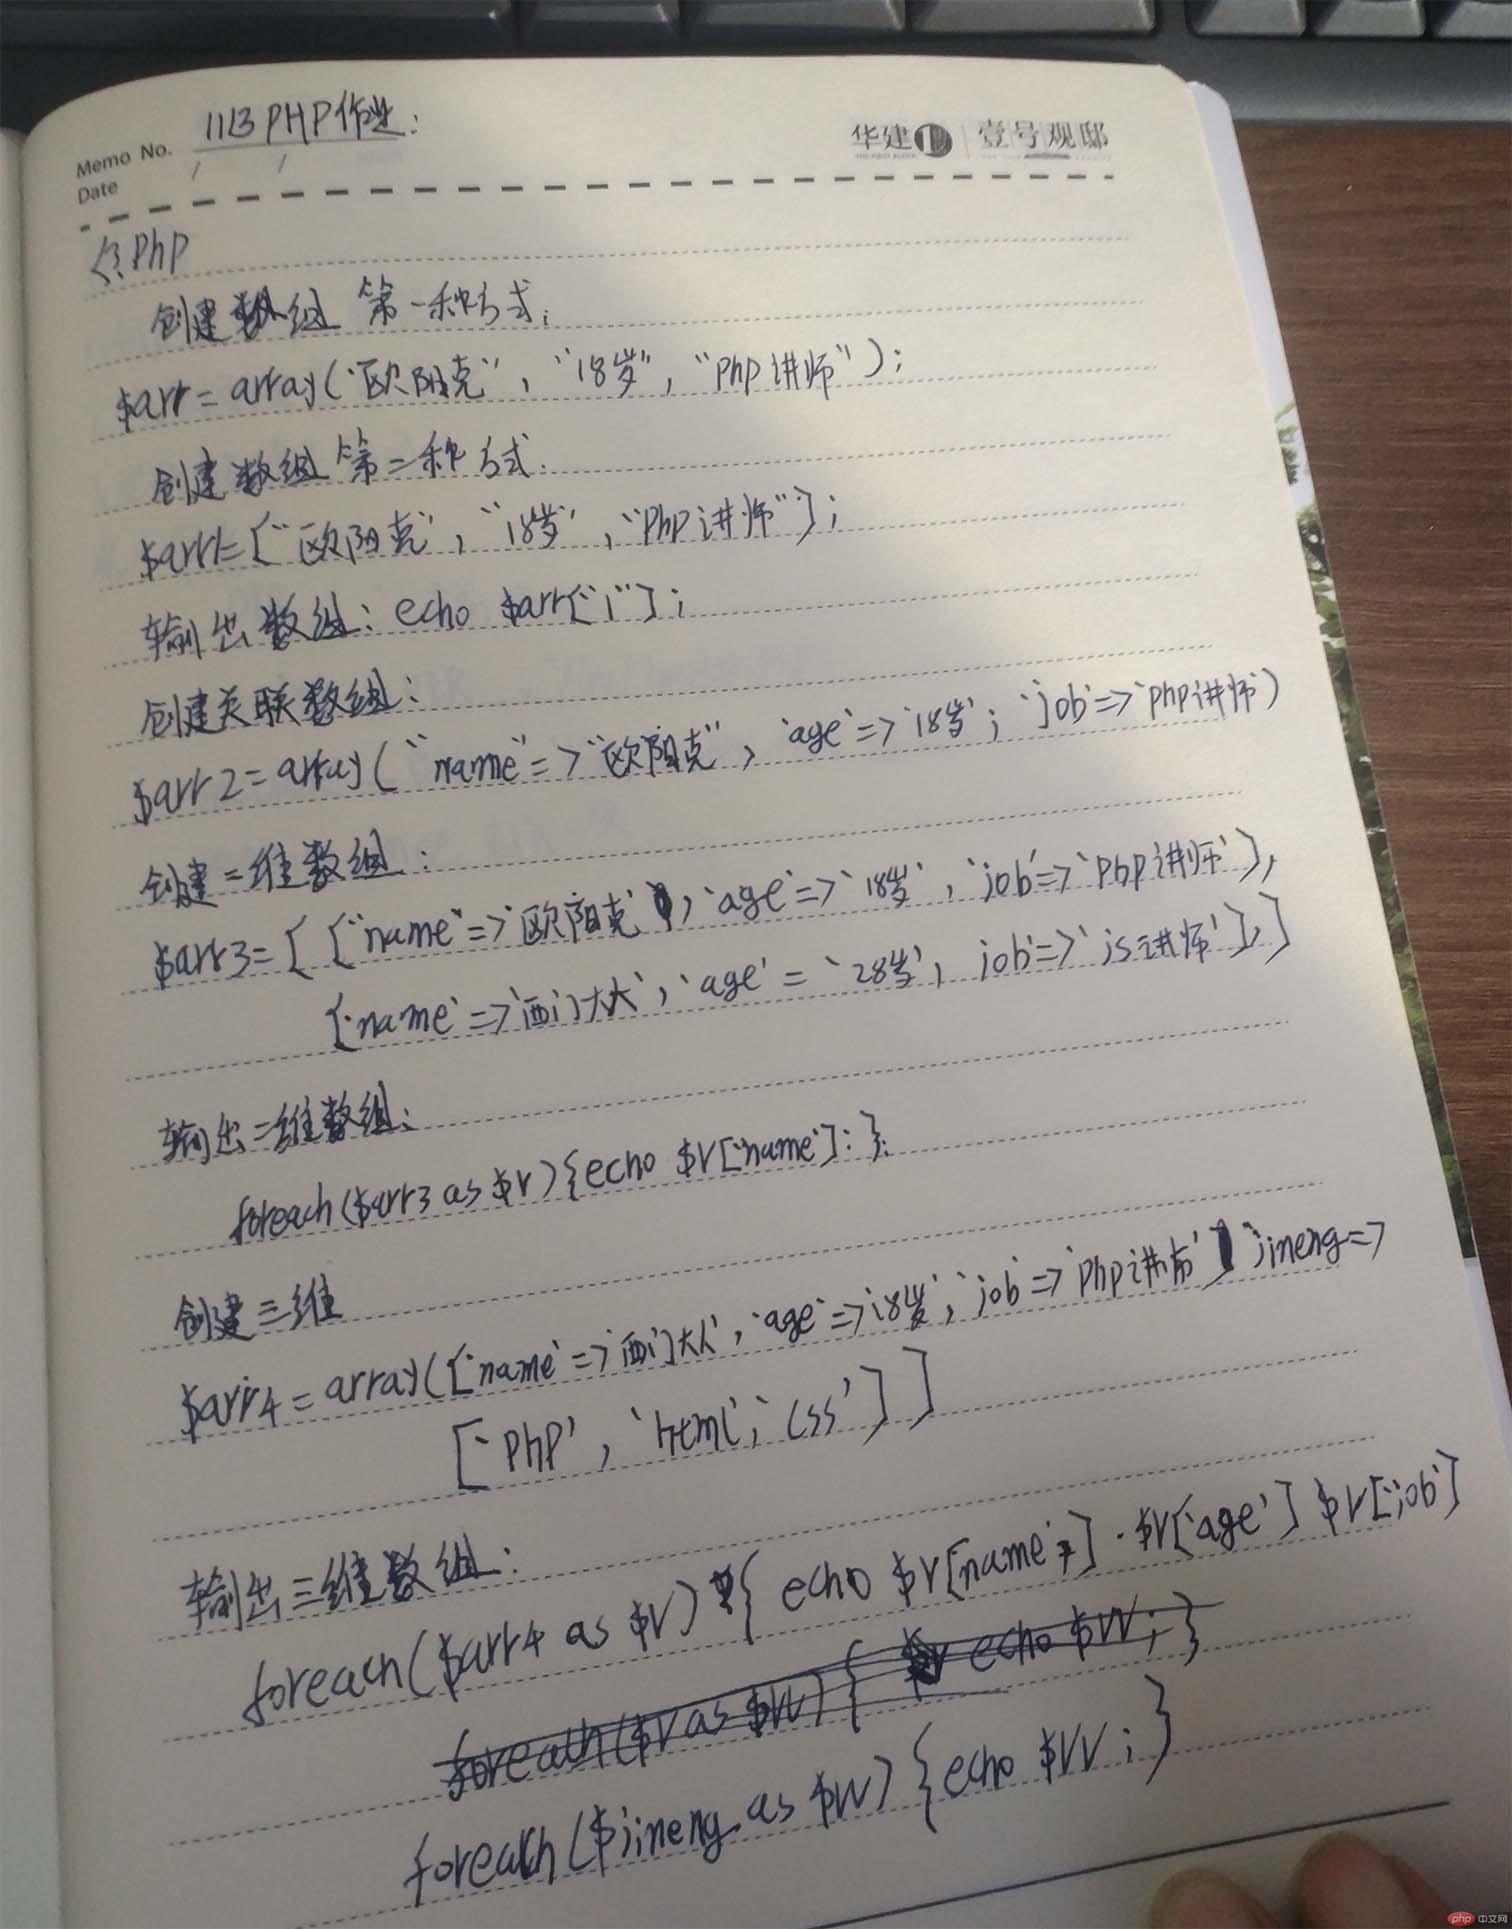 1113 PHP作业:
Memo No.
Date / /
华建 壹号观邸
<?php
创建数组 第一种方式:
$arr = array("欧阳克", "18岁", "php讲师");
创建数组 第二种方式:
$arr1=["欧阳克", "18岁", "php讲师"];
输出数组: echo $arr["1"];
创建关联数组:
$arr2=array("name"=>"欧阳克", 'age'=>'18岁', 'job'=>'php讲师')
创建二维数组:
$arr3=[["name"=>'欧阳克', 'age'=>'18岁', 'job'=>'php讲师'],
['name'=>'西门大大', 'age'='28岁', job'=>'js讲师'],]
输出二维数组:
foreach($arr3 as $v){echo $v['name'];};
创建三维
$arr4=array(['name'=>'西门大大', 'age'=>'18岁', 'job'=>'php讲师' 'jineng=>
['php', 'html', 'css']]
输出三维数组:
foreach($arr4 as $v) { echo $v[name'] . $v['age'] $v['job']
foreach($v as $vv){ echo $vv; }
foreach($jineng as $vv) {echo $vv; }
php 中文网